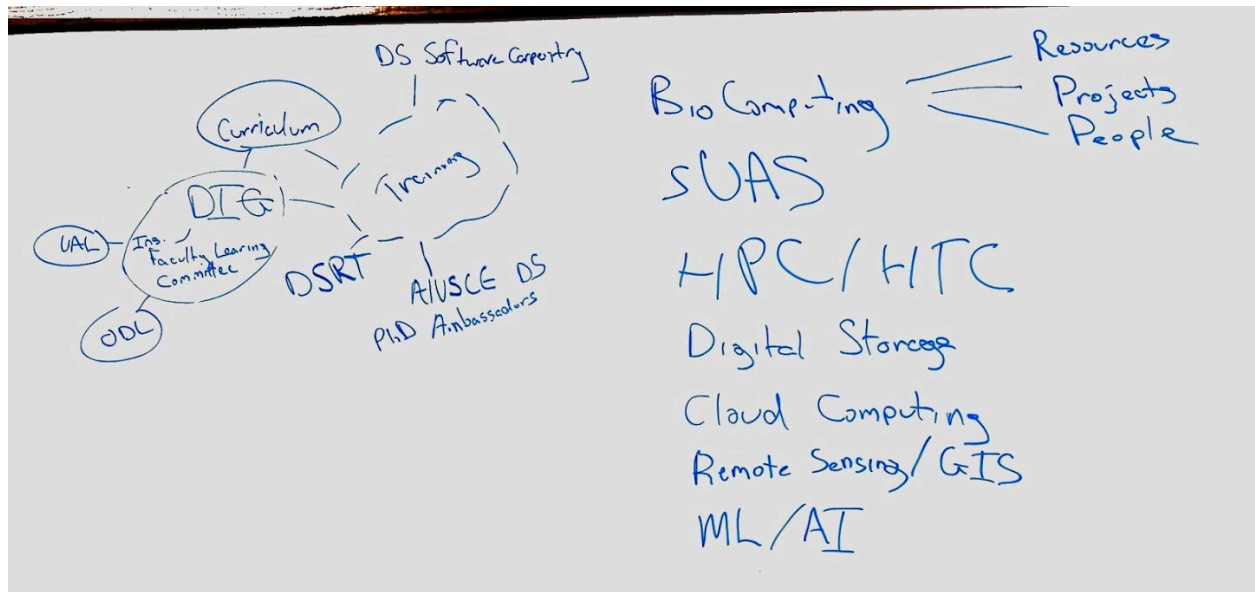 DS Software Carpentry
Curriculum
Training
DIG
UAL
Faculty Learing
Committee
ODL
DSRT
DS
PhD Ambassadors
Bio Computing
Resources
Projects
People
sUAS
HPC/HTC
Digital Storage
Cloud Computing
Remote Sensing/GIS
ML/AI